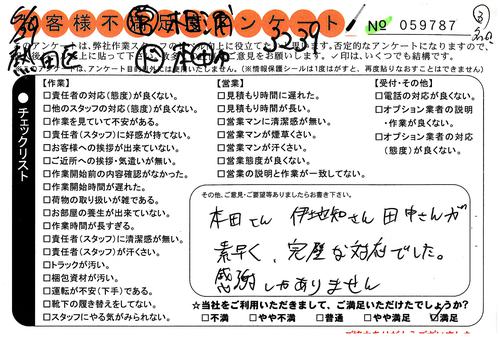 お客様不満足度アンケート
№ 059787
熱田区
3239
このアンケートは、弊社作業スタッフの
●チェックリスト
【作業】
□責任者の対応(態度)が良くない。
□他のスタッフの対応(態度)が良くない。
□作業を見ていて不安がある。
□責任者(スタッフ)に好感が持てない。
□お客様への挨拶が出来ていない。
□ご近所への挨拶・気遣いが無い。
□作業開始前の内容確認がなかった。
□作業開始時間が遅れた。
□荷物の取り扱いが雑である。
□お部屋の養生が出来ていない。
□作業時間が長すぎる。
□責任者(スタッフ)に清潔感が無い。
□責任者(スタッフ)が汗くさい。
□トラックが汚い。
□梱包資材が汚い。
□運転が不安(下手)である。
□靴下の履き替えをしてない。
□スタッフにやる気がみられない。
【営業】
□見積もり時間に遅れた。
□見積もり時間が長い。
□営業マンに清潔感が無い。
□営業マンが煙草くさい。
□営業マンが汗くさい。
□営業態度が良くない。
□営業の説明と作業が一致してない。
【受付・その他】
□電話の対応が良くない。
□オプション業者の説明
・作業が良くない。
□オプション業者の対応
(態度)が良くない。
その他、ご意見・ご要望等ありましたらお書き下さい。
本田さん 伊地知さん 田中さんが
素早く、完璧な対応でした。
感謝しかありません
☆当社をご利用いただきまして、ご満足いただけたでしょうか?
□不満 □やや不満 □普通 □やや満足 ☑満足